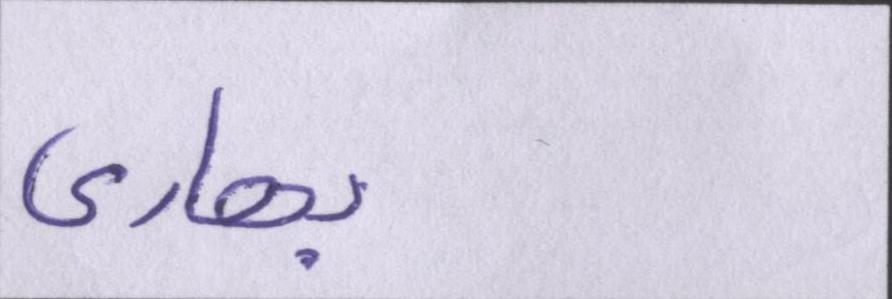 بھاری